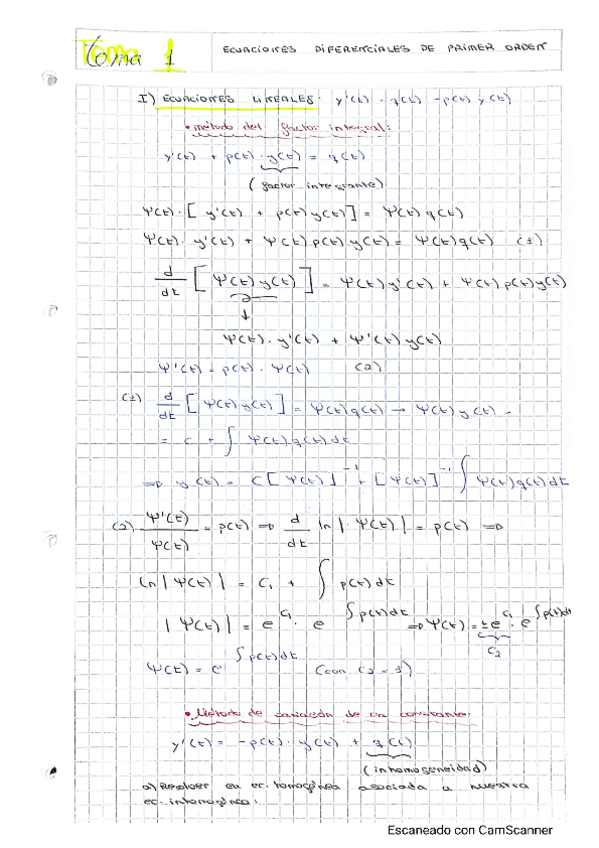 Tema 1
ECUACIONES DIFERENCIALES DE PRIMER ORDEN
I) ECUACIONES LINEALES: y'(t) = q(t) - p(t) y(t)
• Método del factor integral:
y'(t) + p(t) · y(t) = q(t)
(factor integrante)
Ψ(t) · [ y'(t) + p(t) y(t) ] = Ψ(t) q(t)
Ψ(t) · y'(t) + Ψ(t) p(t) y(t) = Ψ(t) q(t) (1)
d/dt [ Ψ(t) y(t) ] = Ψ(t) y'(t) + Ψ(t) p(t) y(t)
↓
Ψ(t) · y'(t) + Ψ'(t) y(t)
Ψ'(t) = p(t) · Ψ(t) (2)
(1) d/dt [ Ψ(t) y(t) ] = Ψ(t) q(t) → Ψ(t) y(t) =
= c + ∫ Ψ(t) q(t) dt
⇒ y(t) = c [ Ψ(t) ]⁻¹ + [ Ψ(t) ]⁻¹ ∫ Ψ(t) q(t) dt
(2) Ψ'(t)/Ψ(t) = p(t) ⇒ d/dt ln | Ψ(t) | = p(t) ⇒
ln | Ψ(t) | = c₁ + ∫ p(t) dt
| Ψ(t) | = e^c₁ · e^∫p(t)dt ⇒ Ψ(t) = ± e^c₁ · e^∫p(t)dt
c₂
Ψ(t) = e^∫p(t)dt (con c₂ = 1)
• Método de variación de la constante:
y'(t) = -p(t) · y(t) + q(t)
(inhomogeneidad)
a) Resolver la ec. homogénea asociada a nuestra
ec. inhomogénea:
Escaneado con CamScanner